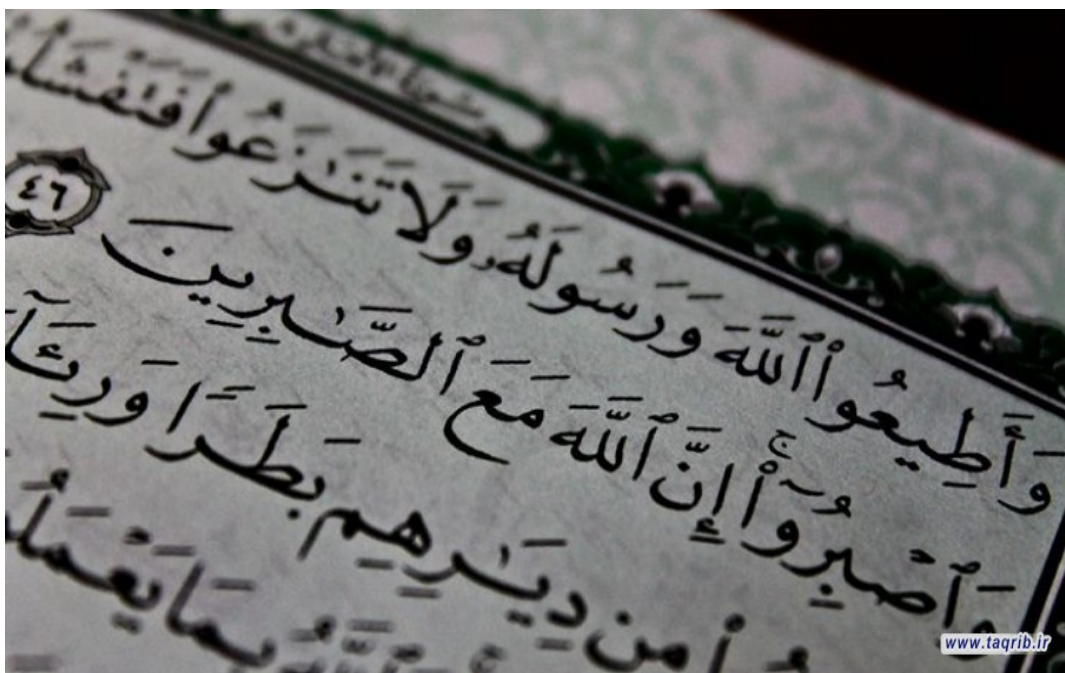 سورة الأنفال
وَأَطِيعُوا۟ ٱللَّهَ وَرَسُولَهُۥ وَلَا تَنَٰزَعُوا۟ فَتَفْشَلُ
وَٱصْبِرُوٓا۟ۚ إِنَّ ٱللَّهَ مَعَ ٱلصَّٰبِرِينَ ٤٦
مِن دِيَٰرِهِم بَطَرًا وَرِئَآ
بِمَا يَعْمَلُ
www.taqrib.ir